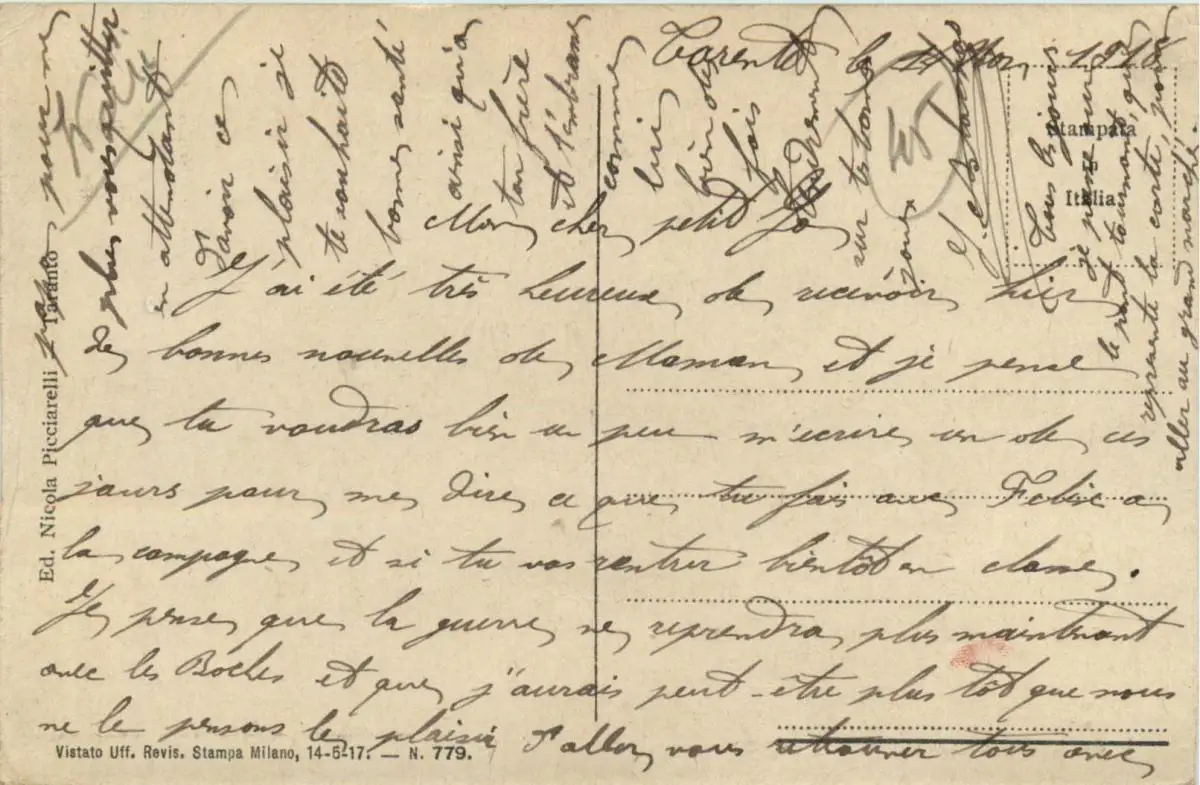 Tarente le 14 Nov 1918
Mon cher petit
J'ai été très heureux de recevoir hier
de bonnes nouvelles de Maman et je pense
que tu voudras bien un peu m'ecrire un de ces
jours pour me dire ce que tu fais avec Felix a
la campagne et si tu vas rentrer bientôt en classe.
Je pense que la guerre ne reprendra plus maintenant
avec les Boches et que j'aurais peut-être plus tôt que nous
ne le pensons le plaisir d'aller vous retrouver tous avec
papa pour ne
plus vous quitter
en attendant
d'avoir ce
plaisir je
te souhaite
bonne santé
ainsi qu'a
ton frère
et t'embrasse
comme
lui
bien des
fois
sur tes bonnes
joues
Tous les jours
je passe sur
le pont tournant que
represente la carte, pour
aller au grand marché
Stampata
in
Italia
Ed. Nicola Picciarelli Taranto
Vistato Uff. Revis. Stampa Milano, 14-5-17. — N. 779.